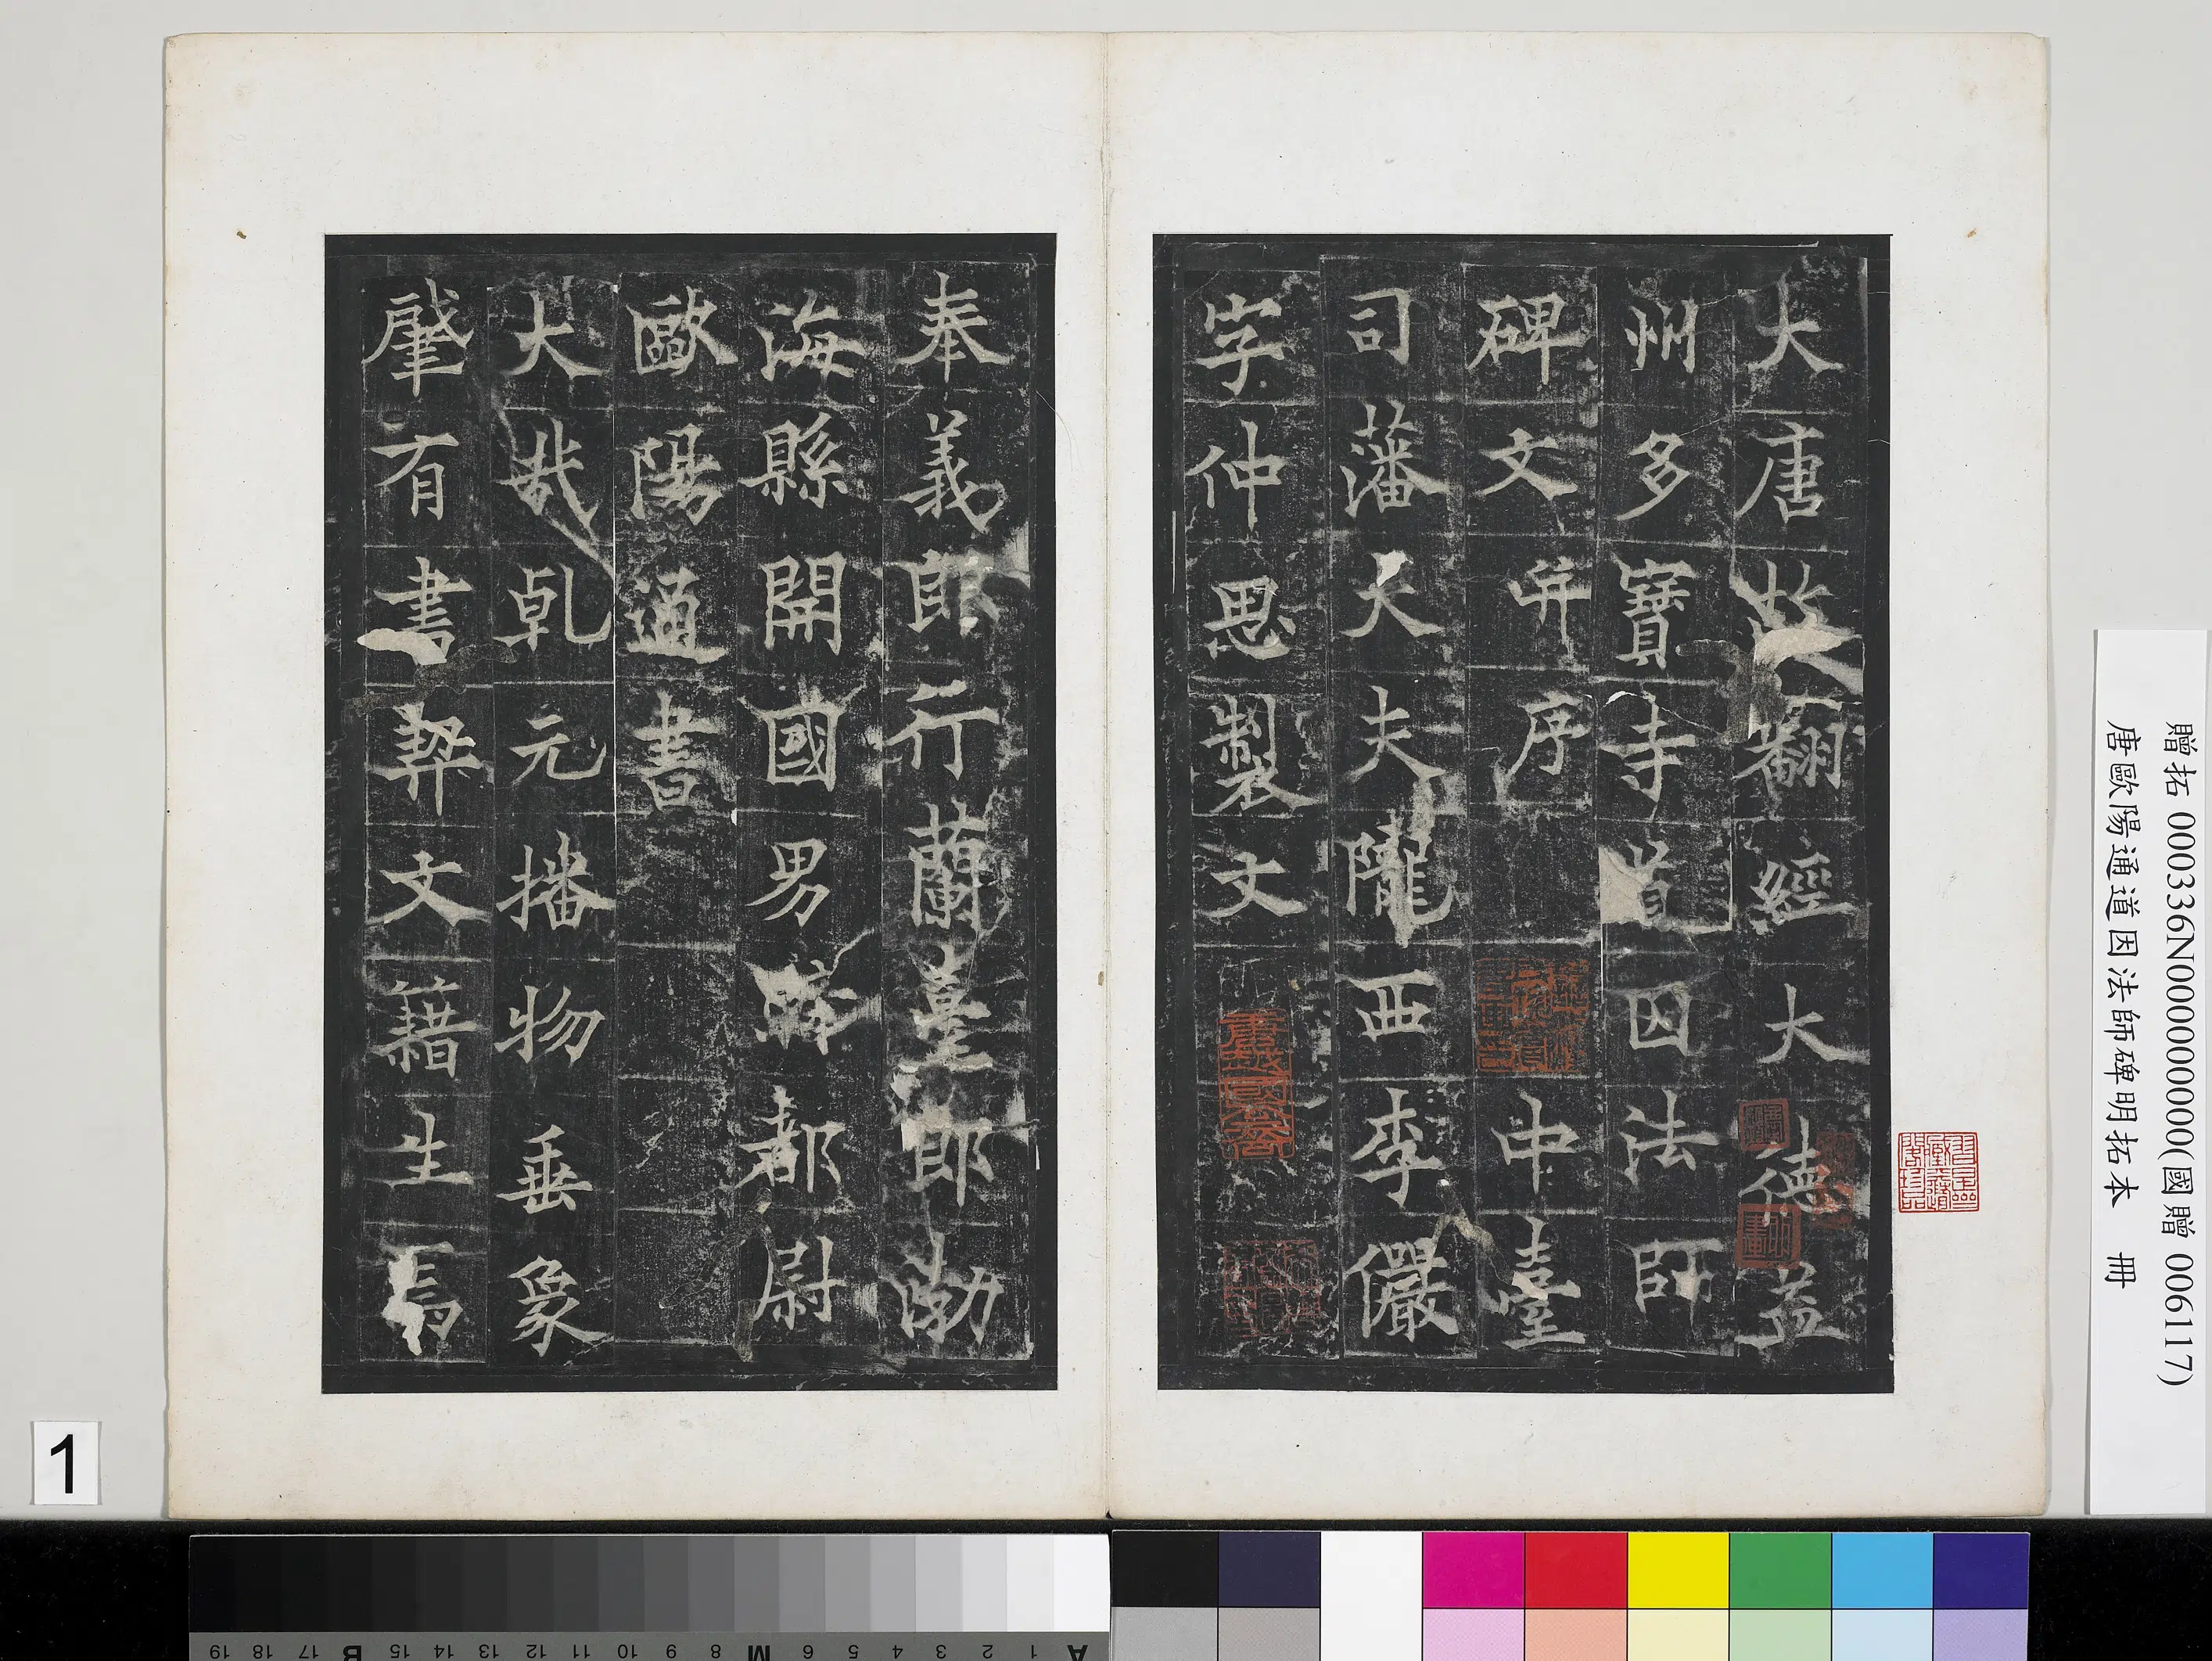 大唐故翻經大德益
州多寶寺道因法師
碑文并序 中臺
司藩大夫隴西李儼
字仲思製文
奉義郎行蘭臺郎渤
海縣開國男騎都尉
歐陽通書
大哉乾元播物垂象
肇有書契文籍生焉
贈拓 000336N000000000(國贈 006117)
唐歐陽通道因法師碑明拓本 冊
1
A 1 2 3 4 5 6 M 8 9 10 11 12 13 14 15 B 17 18 19